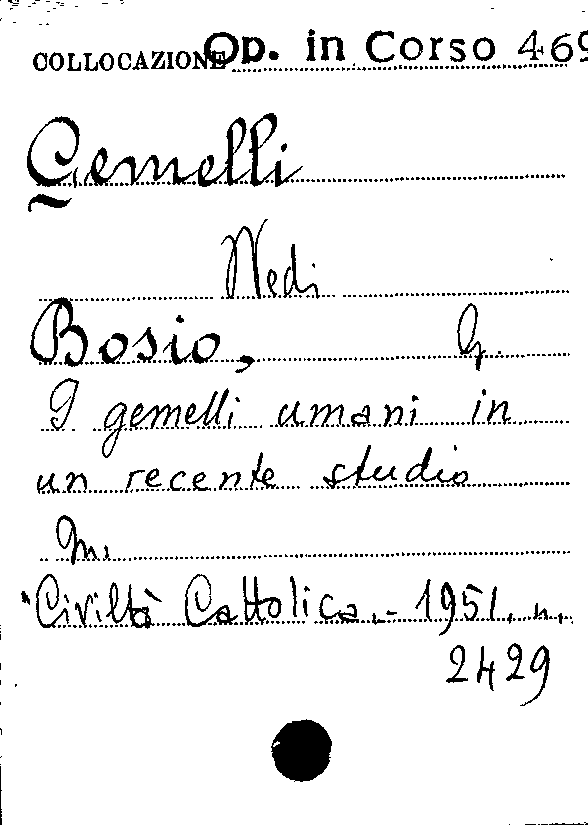 COLLOCAZIONE Op. in Corso 469
Gemelli
Vedi
Bosio, G.
I gemelli umani in
un recente studio
In:
"Civiltà Cattolica.- 1951. n.
2429